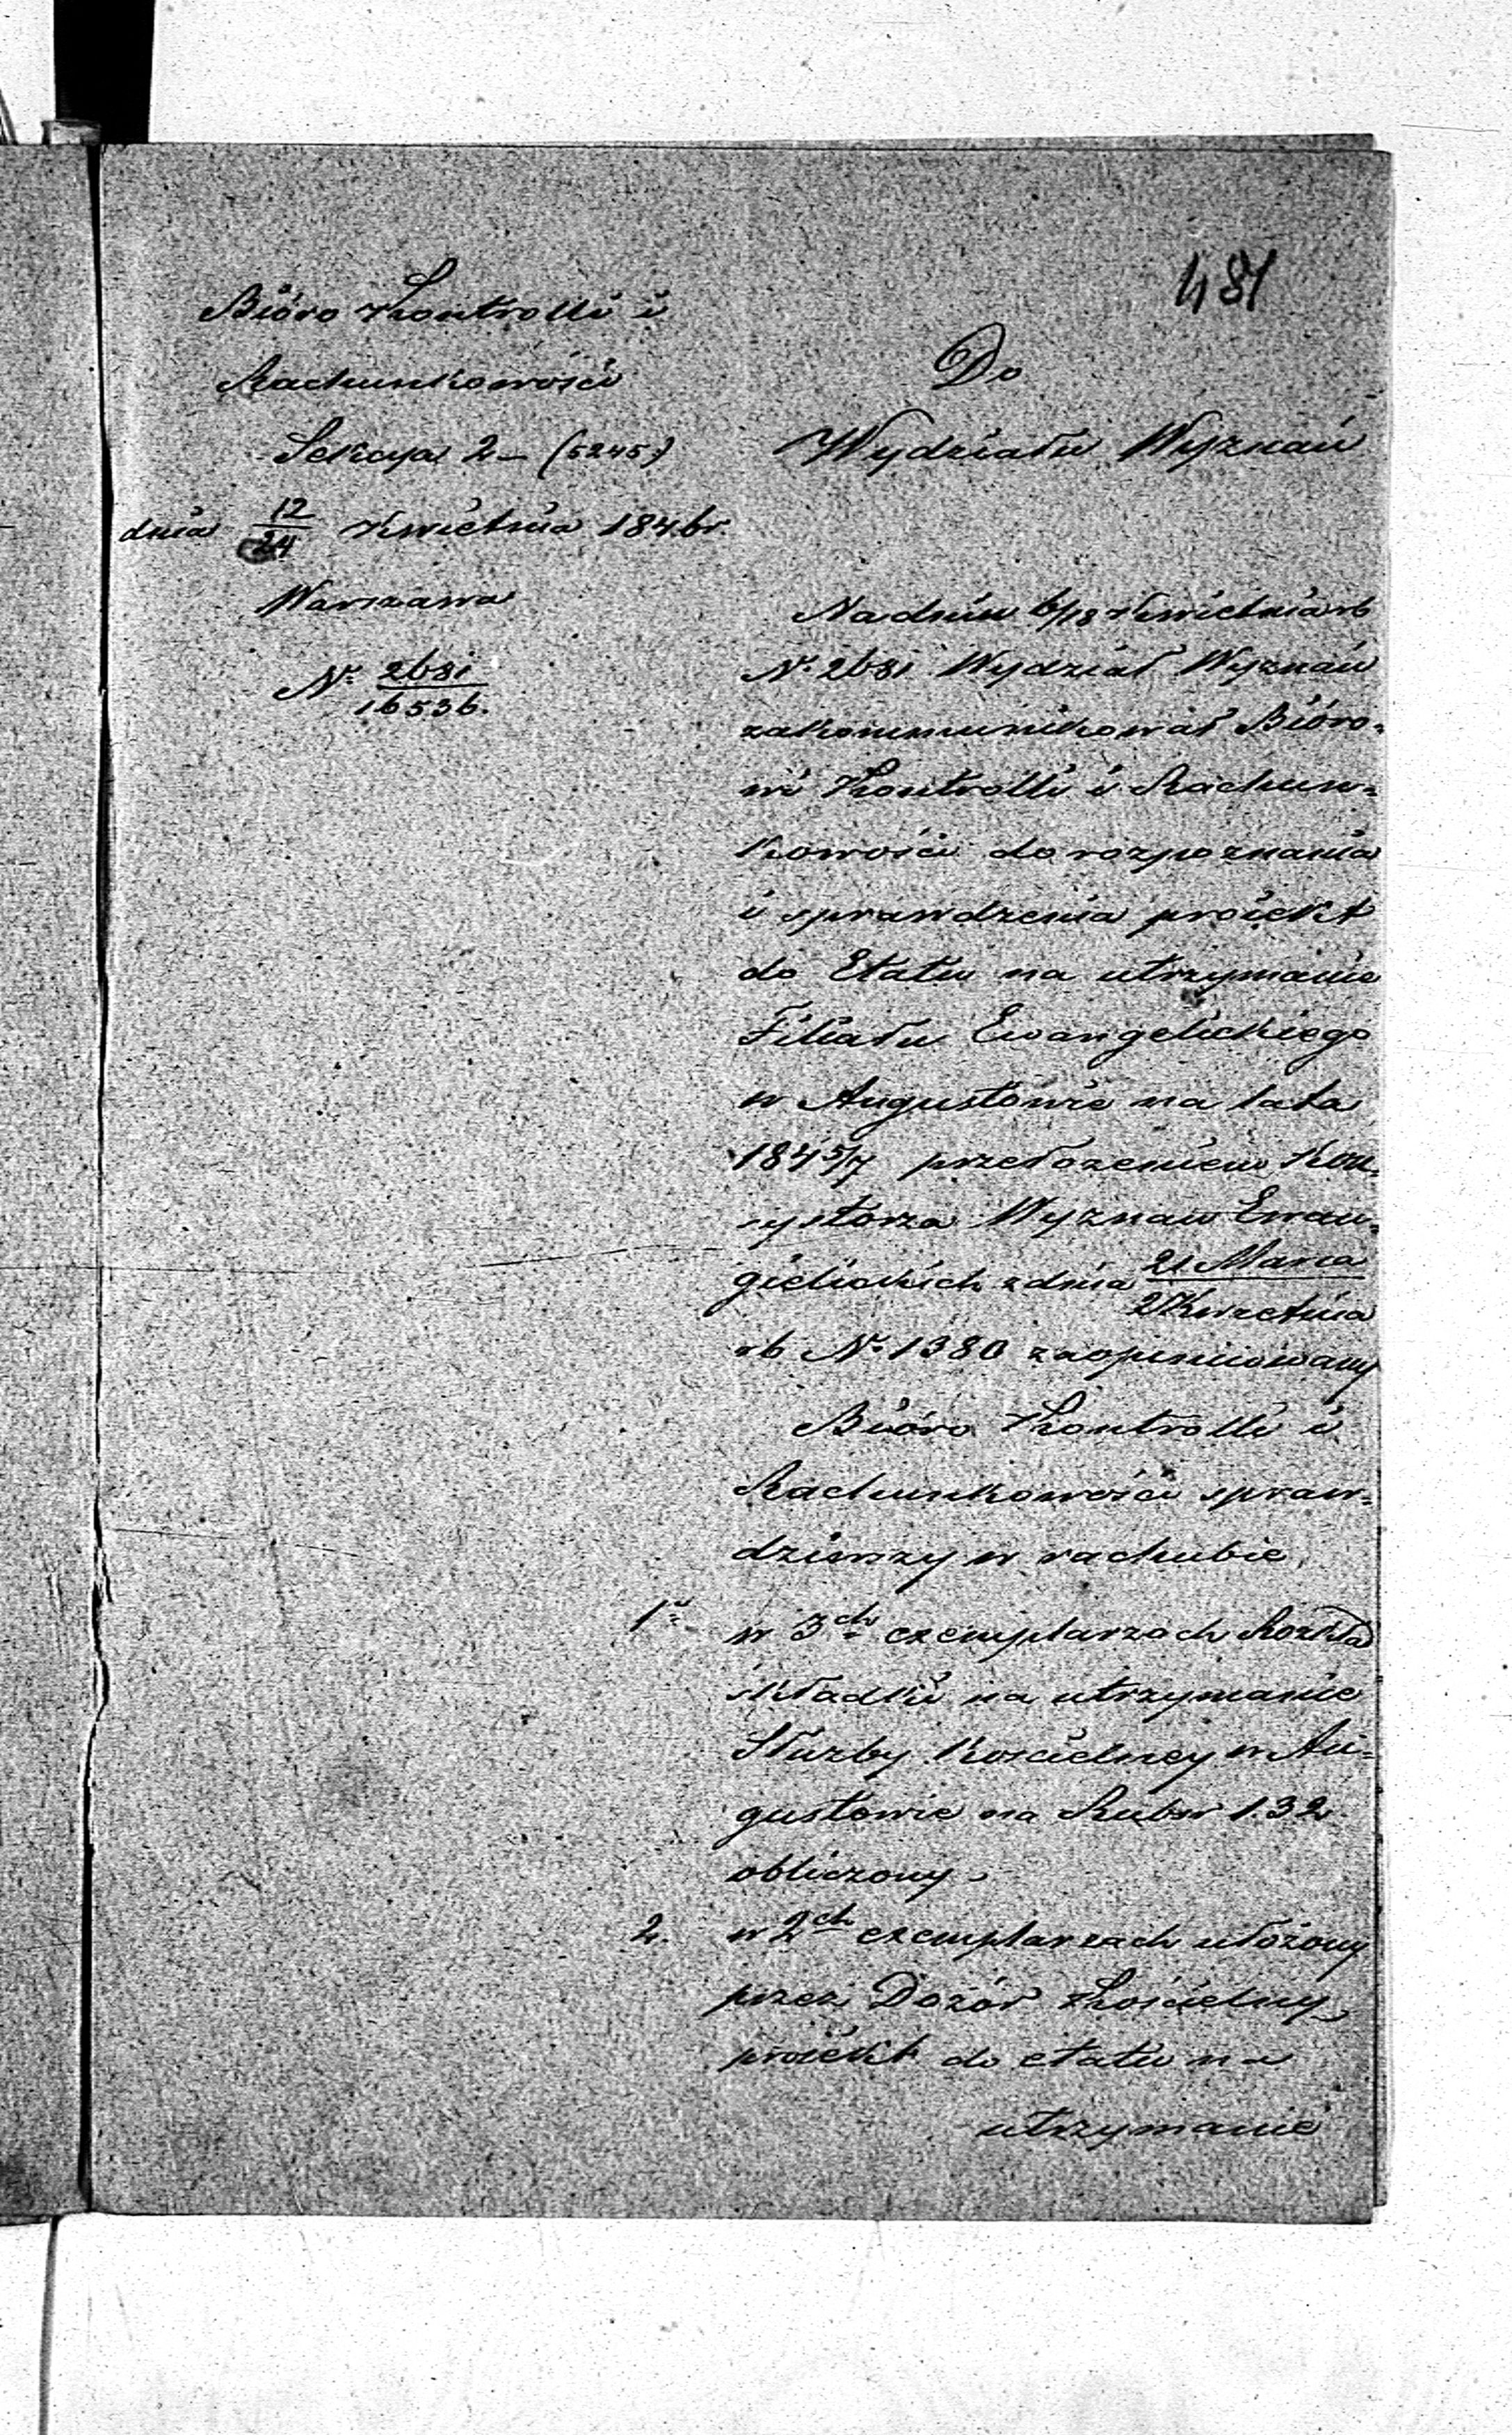 481
Bióro Kontrolli i
Rachunkowości
Sekcya 2 – (5245.)
dnia 12/24 Kwietnia 1846 r.
Warszawa
Nr 2681/16536.
Do
Wydziału Wyznań
Na dniu 6/18 Kwietnia rb
Nr 2681 Wydział Wyznań
zakommunikował Bióro=
wi Kontrolli i Rachun=
kowości do rozpoznania
i sprawdzenia proiekt
do Etatu na utrzymanie
Filiału Ewangelickiego
w Augustowie na lata
1845/7 przełożeniem Kon=
systorza Wyznań Ewan=
gielickich z dnia 21 Marca/2 Kwietnia
rb Nr 1380 zaopiniowany
Bióro Kontrolli i
Rachunkowości spraw=
dziwszy w rachubie,
1o w 3ch exemplarzach Rozkład
składki na utrzymanie
Służby Kościelney w Au=
gustowie na Rubsr 132
obliczony.
2. w 2ch exemplarzach ułożony
przez Dozór Kościelny
proiekt do etatu na
utrzymanie